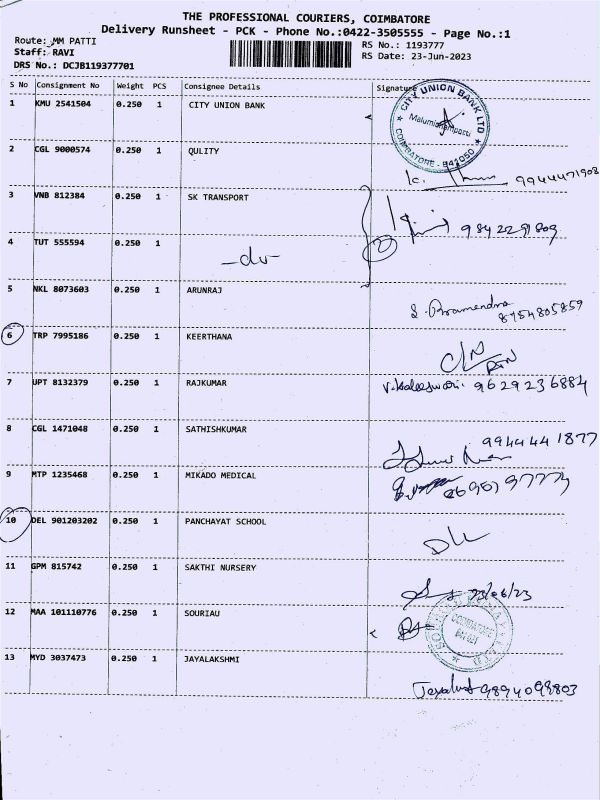 THE PROFESSIONAL COURIERS, COIMBATORE
Delivery Runsheet - PCK - Phone No.:0422-3505555 - Page No.:1
Route: MM PATTI
Staff: RAVI
DRS No.: DCJB119377701
RS No.: 1193777
RS Date: 23-Jun-2023
S No Consignment No Weight PCS Consignee Details Signature
1 KMU 2541504 0.250 1 CITY UNION BANK
CITY UNION BANK LTD
COIMBATORE - 641050
2 CGL 9000574 0.250 1 QULITY
9944471908
3 VNB 812384 0.250 1 SK TRANSPORT
9842291809
4 TUT 555594 0.250 1
-do-
5 NKL 8073603 0.250 1 ARUNRAJ
8754805859
6 TRP 7995186 0.250 1 KEERTHANA
7 UPT 8132379 0.250 1 RAJKUMAR
9629236884
8 CGL 1471048 0.250 1 SATHISHKUMAR
9944441877
9 MTP 1235468 0.250 1 MIKADO MEDICAL
10 DEL 901203202 0.250 1 PANCHAYAT SCHOOL
11 GPM 815742 0.250 1 SAKTHI NURSERY
23/06/23
12 MAA 101110776 0.250 1 SOURIAU
COIMBATORE
13 MYD 3037473 0.250 1 JAYALAKSHMI
9894098803